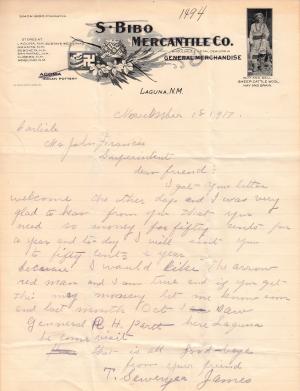 1494
SIMON BIBO, PRESIDENT
S. BIBO
MERCANTILE CO.
WHOLESALE
GENERAL MERCHANDISE
STORES AT
ACOMA
INDIAN POTTERY
BUY AND SELL
SHEEP, CATTLE, WOOL
HAY AND GRAIN.
LAGUNA, N.M.
November 18 1917.
Carlisle
Mr John Francis
Superintendent
dear friend:
I got your letter
welcome the other day and I was very
glad to hear from you that you
need so money for fifty cents for
a year and to day I will send you
to fifty cents a year
because I would like the arrow
red man and I am true and if you get
this my money let me know soon
and last month Oct I saw
General R H Pratt here Laguna
he come visit
that is all good bye
from your friend
T. Seweryea James